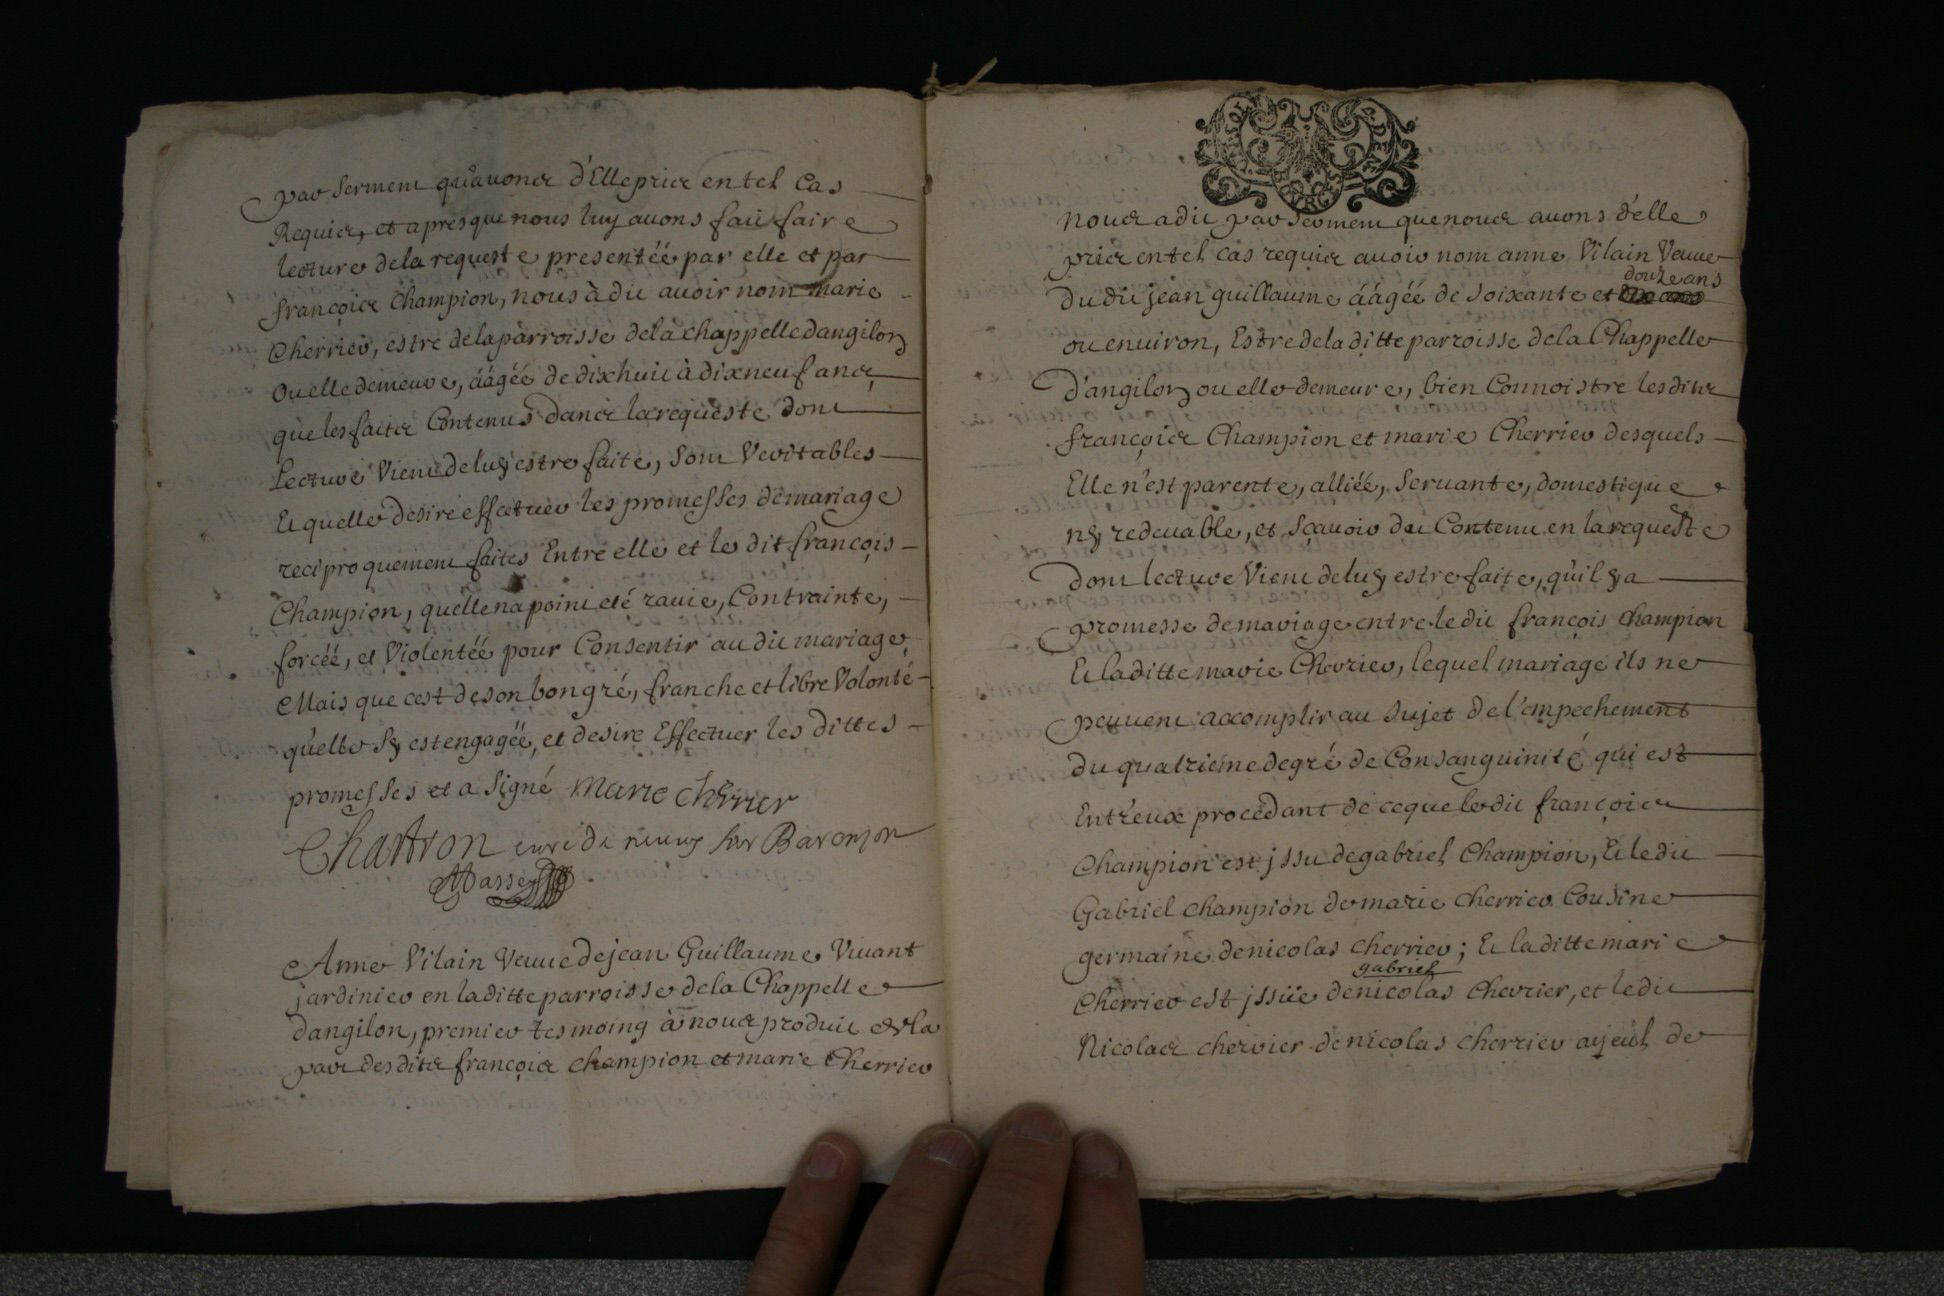 par serment qu'avons d'Elle pris en tel Cas
Requis, et apres que nous luy avons fait faire
lecture de la requeste presentéé par elle et par
françois Champion, nous à dit avoir nom marie
Cherrier, estre de la parroisse de la chappelle dangilon
ou elle demeure, áágéé de dixhuit à dixneuf ans,
que les faits Contenus dans la requeste dont
Lecture Vient de luy estre faite, sont Veritables
Et quelle desire effectuer les promesses de mariage
reciproquement faites Entre elle et le dit françois
Champion, quelle na point eté ravie, Contrainte,
forcéé, et Violentéé pour Consentir au dit mariage,
Mais que cest de son bon gré, franche et libre Volonté
qu'elle sy est engagéé, et desire Effectuer les dittes
promesses et a signé Marie cherrier
Chartron curé de neuvy sur Baronjon
Massey
Anne Vilain Veuve de jean Guillaume Vivant
jardinier en la ditte parroisse de la Chappelle
dangilon, premier tesmoing à nous produit
part desdits françois Champion et marie Cherrier
nous a dit par serment que nous avons d'elle
pris en tel cas requis avoir nom anne Vilain Veuve
douze ans
du dit jean guillaume áágéé de soixante et
ou environ, Estre de la ditte parroisse de la Chappelle
D'angilon ou elle demeure, bien Connoistre lesdits
françois Champion et marie Cherrier desquels
Elle n'est parente, alliéé, servante, domestique
ny redevable, et sçavoir du Contenu en la requeste
dont lecture Vient de luy estre faite, qu'il y a
promesse de mariage entre le dit françois Champion
Et la ditte marie Cherrier, lequel mariage ils ne
peuvent accomplir au sujet de l'empechement
du quatrieme degré de Consanguinité qui est
Entr'eux procedant de ce que le dit françois
Champion est jssu de gabriel Champion, Et le dit
Gabriel Champion de marie Cherrier Cousine
germaine de nicolas cherrier; Et la ditte marie
gabriel
Cherrier est jssüe de nicolas Cherrier, et le dit
Nicolas cherrier de nicolas Cherrier ayeul de